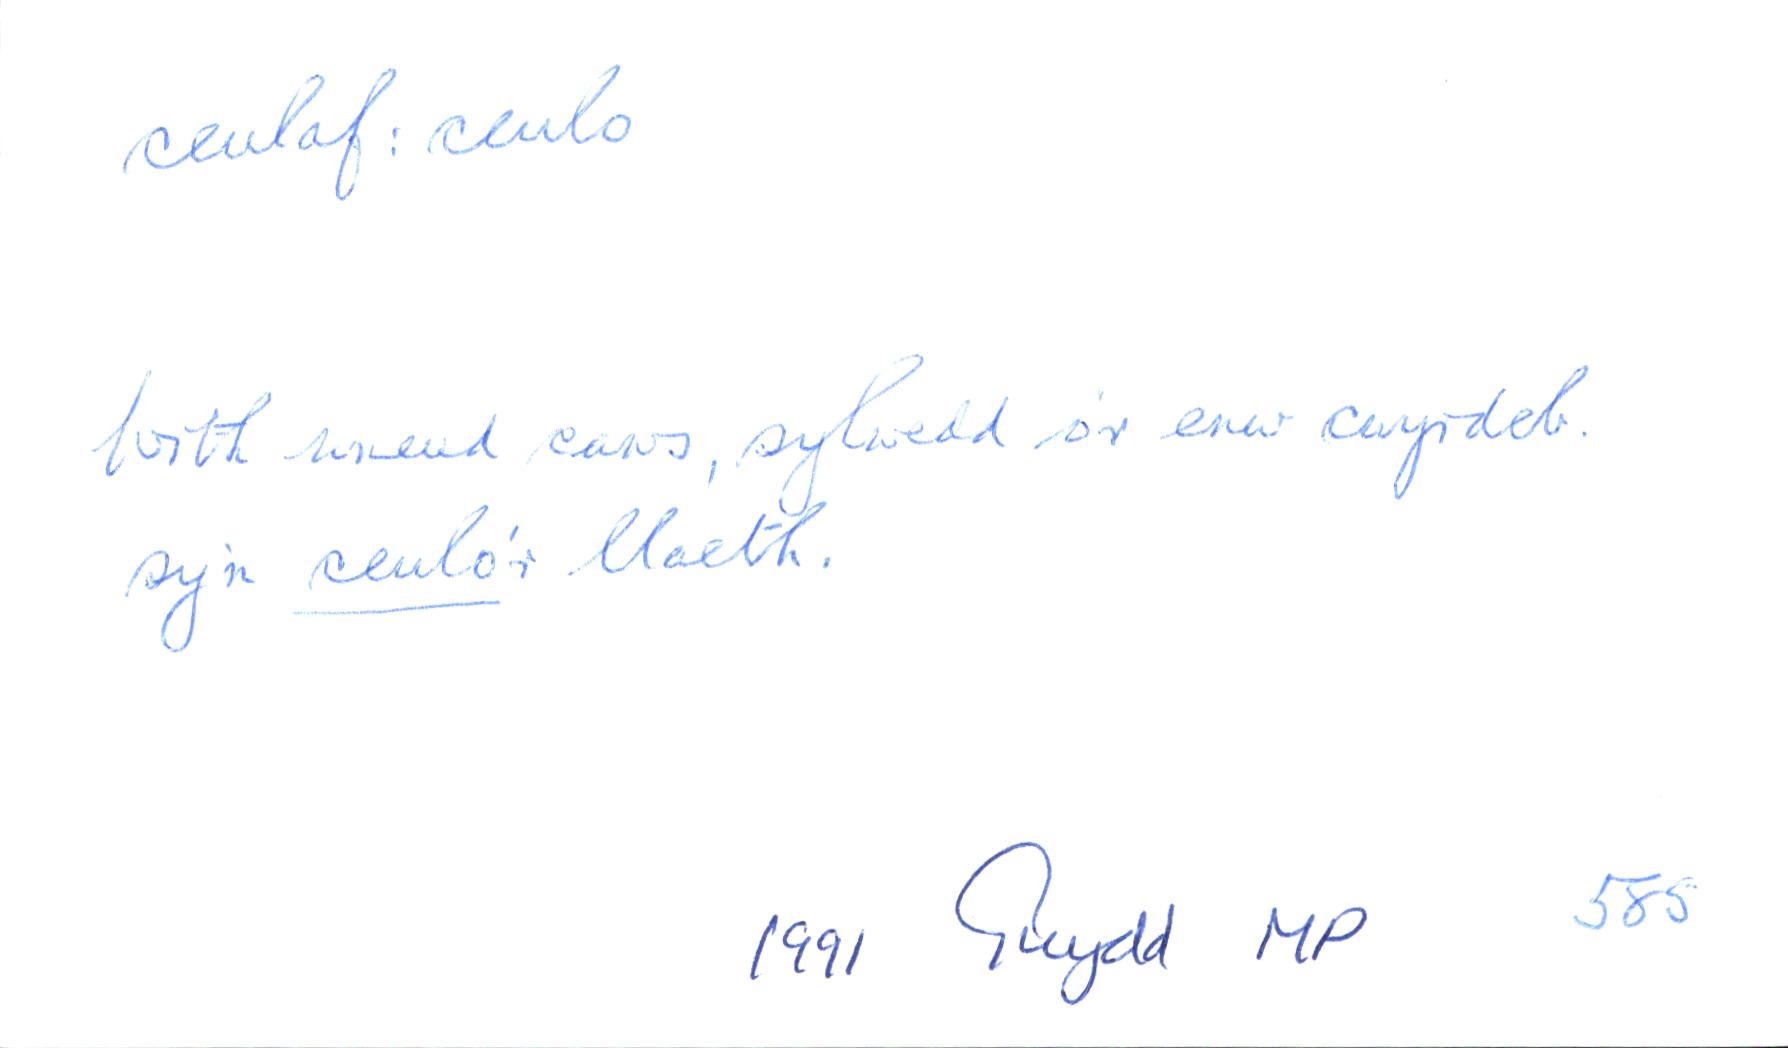 ceulaf: ceulo
Wrth wneud caws, sylwedd o'r enw cwyrdeb.
sy'n ceulo'r llaeth.
1991 Gwydd MP 585